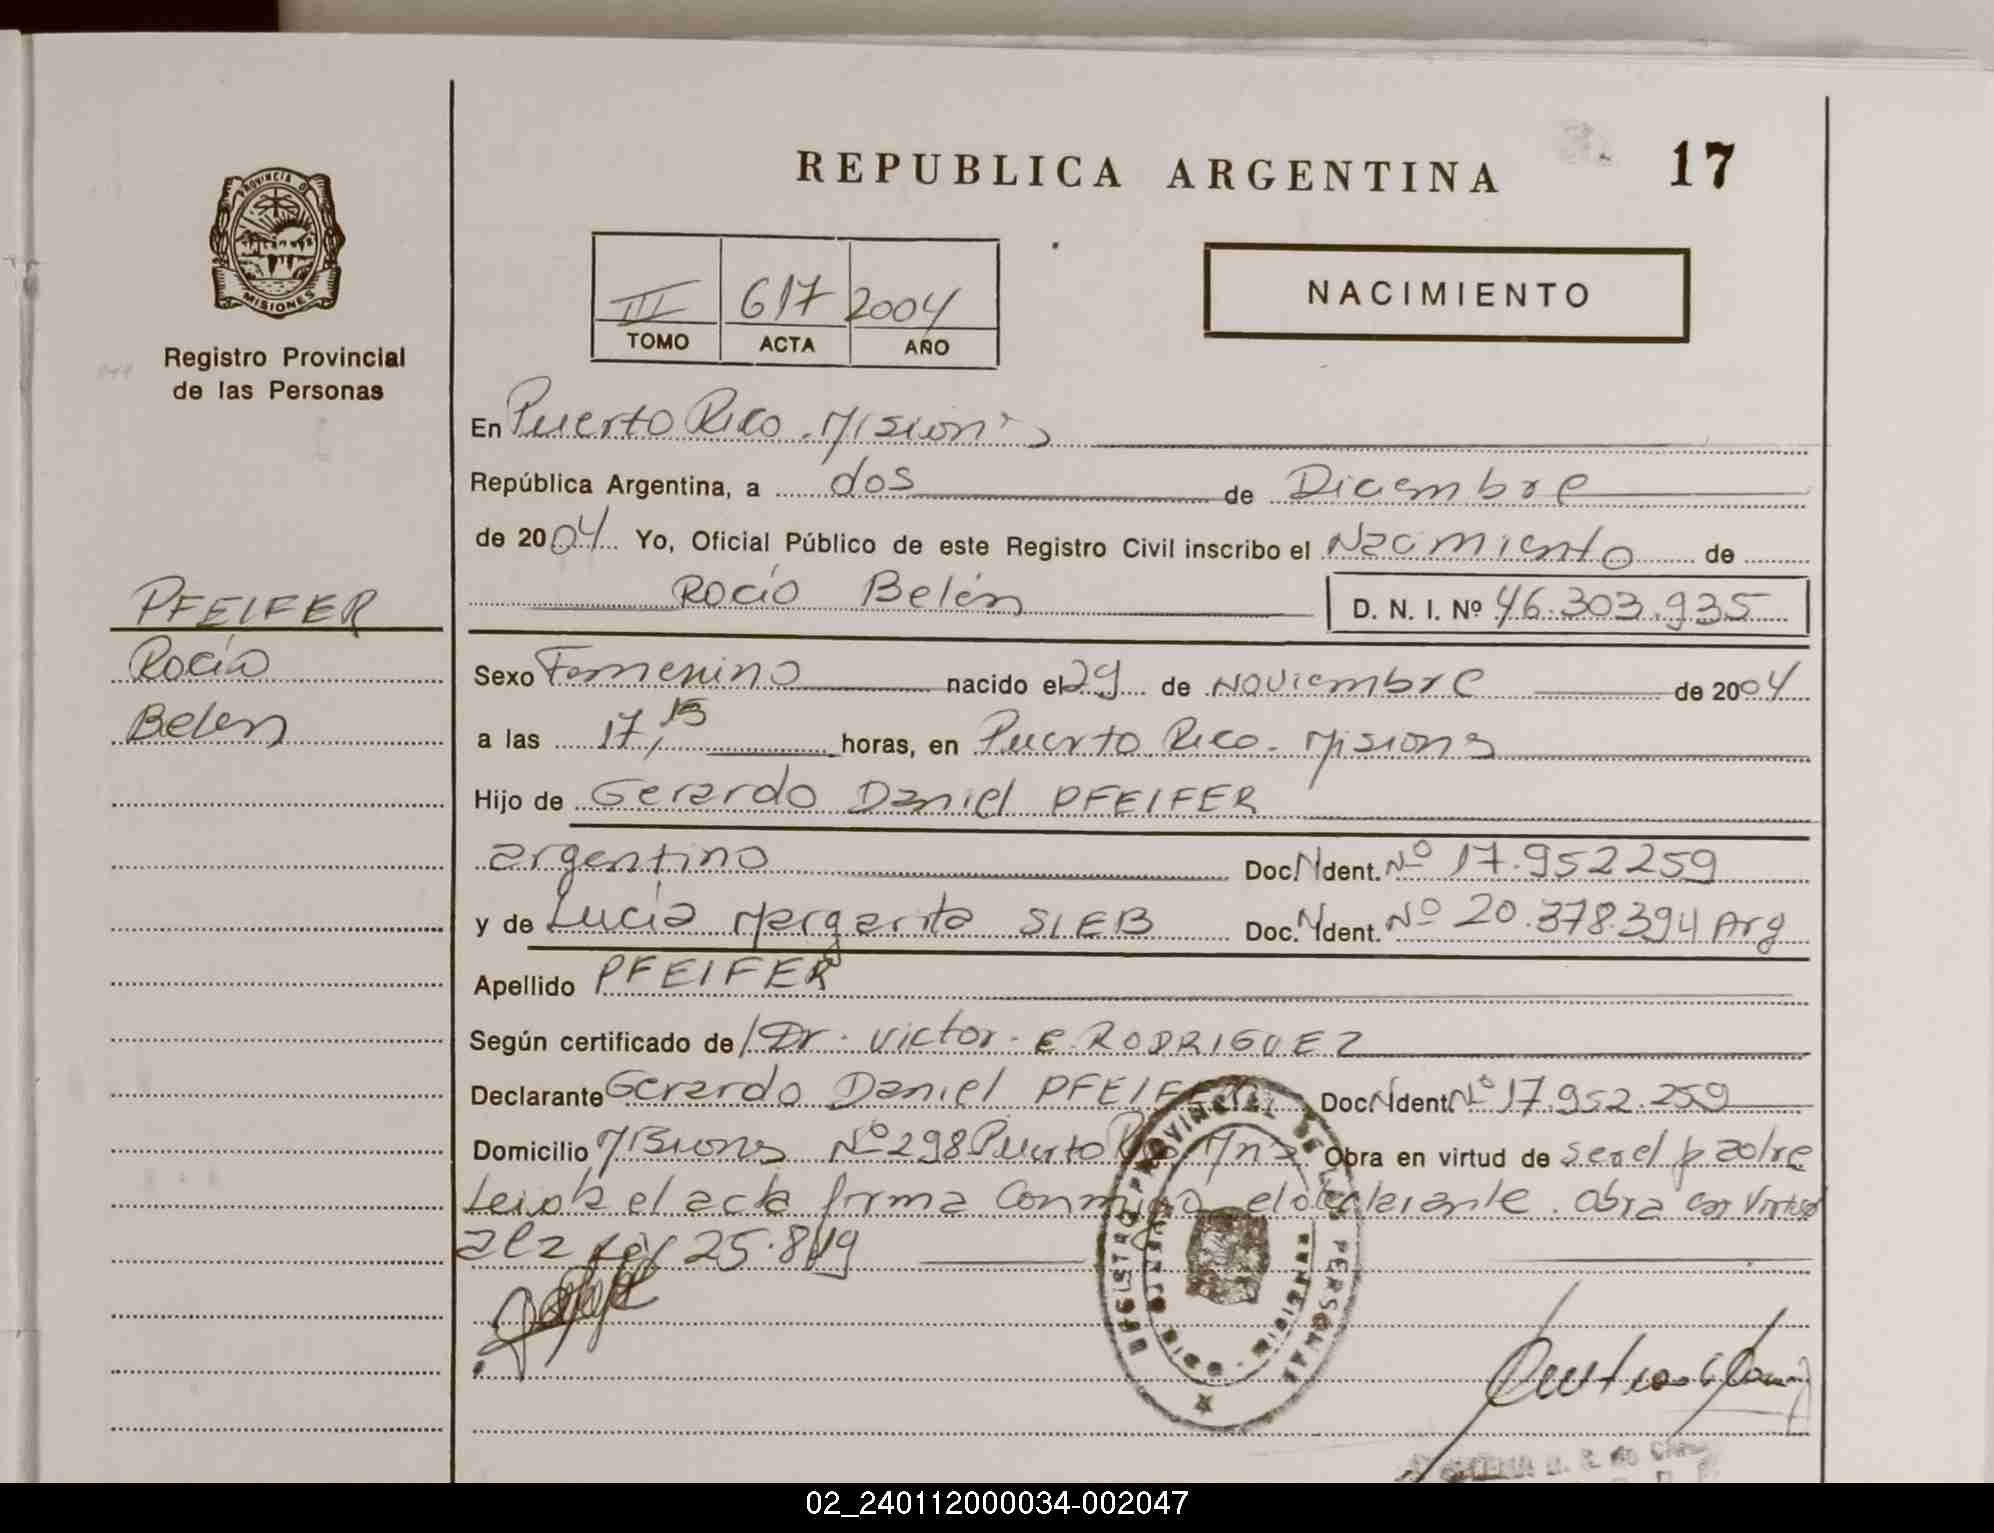 REPUBLICA ARGENTINA
17
PROVINCIA DE
MISIONES
Registro Provincial
de las Personas
III 617 2004
TOMO ACTA AÑO
NACIMIENTO
En Puerto Rico. Misiones
República Argentina, a dos de Diciembre
de 2004 Yo, Oficial Público de este Registro Civil inscribo el Nacimiento de
Rocío Belén D. N. I. Nº 46.303.935
PFEIFER
Rocío
Belen
Sexo Femenino nacido el 29 de Noviembre de 2004
a las 17,15 horas, en Puerto Rico. Misiones
Hijo de Gerardo Daniel PFEIFER
argentino Doc. Ident. Nº 17.952259
y de Lucía Margarita SIEB Doc. Ident. Nº 20.378.394 Arg
Apellido PFEIFER
Según certificado de Dr. Victor. E. RODRIGUEZ
Declarante Gerardo Daniel PFEIFER Doc. Ident. Nº 17.952.259
Domicilio Nº 298 Puerto Rico Mnes Obra en virtud de ser el padre
Leida el acta firma conmigo el declarante. Obra en Virtud
a la 25.819
REGISTRO PROVINCIAL DE LAS PERSONAS
02_240112000034-002047